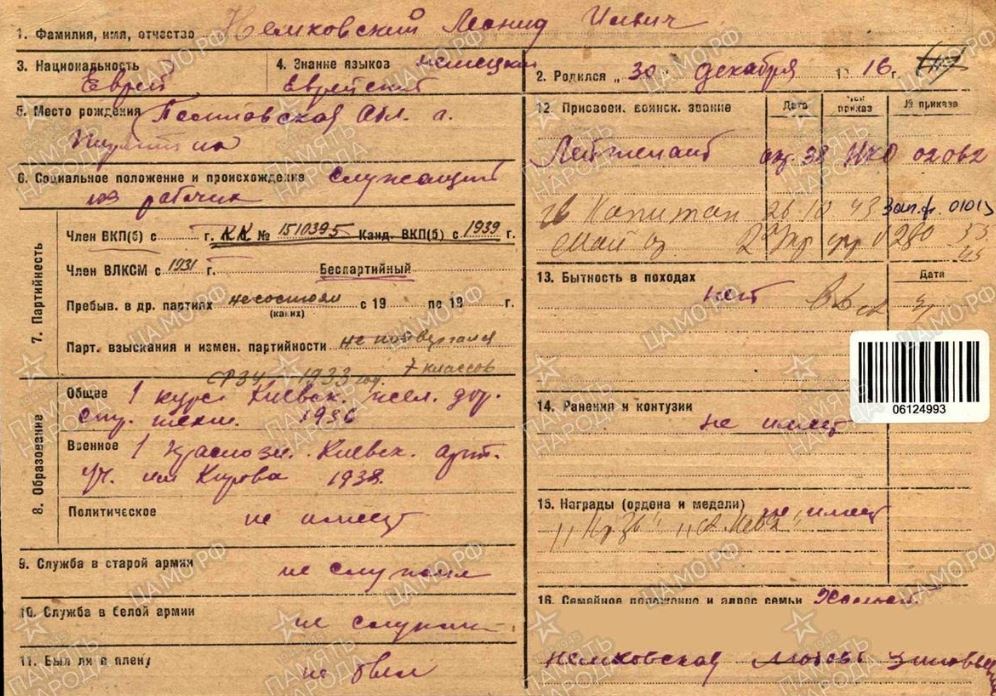 1. Фамилия, имя, отчество Немковский Леонид Ильич
3. Национальность Еврей
4. Знание языков немецкий
Еврейский
2. Родился „30" декабря 1916 г.
5. Место рождения
6. Социальное положение и происхождение служащий
из рабочих
7. Партийность
Член ВКП(б) с г. КК № 1510395 Канд. ВКП(б) с 1939 г.
Член ВЛКСМ с 1931 г. Беспартийный
Пребыв. в др. партиях не состоял с 19 по 19 г.
(каких)
Парт. взыскания и измен. партийности не подвергался
1933 год. 7 классов
8. Образование
Общее 1 курс Киевск. дор.
1936
Военное 1 Киевск. арт.
уч. им Кирова 1938
Политическое не имеет
9. Служба в старой армии не служил
10. Служба в белой армии не служил
11. Был ли в плену не был
12. Присвоен. воинск. звание Дата Чей приказ № приказа
Лейтенант 38 НКО 02062
гв Капитан 26 10 43 Зап. ф. 01013
Майор
13. Бытность в походах Дата
нет
06124993
14. Ранения и контузии
не имеет
15. Награды (ордена и медали) не имеет
„Кр Зв"
16. Семейное положение и адрес семьи
Немковская Любовь
ПАМЯТЬ НАРОДА
ЦАМО.РФ